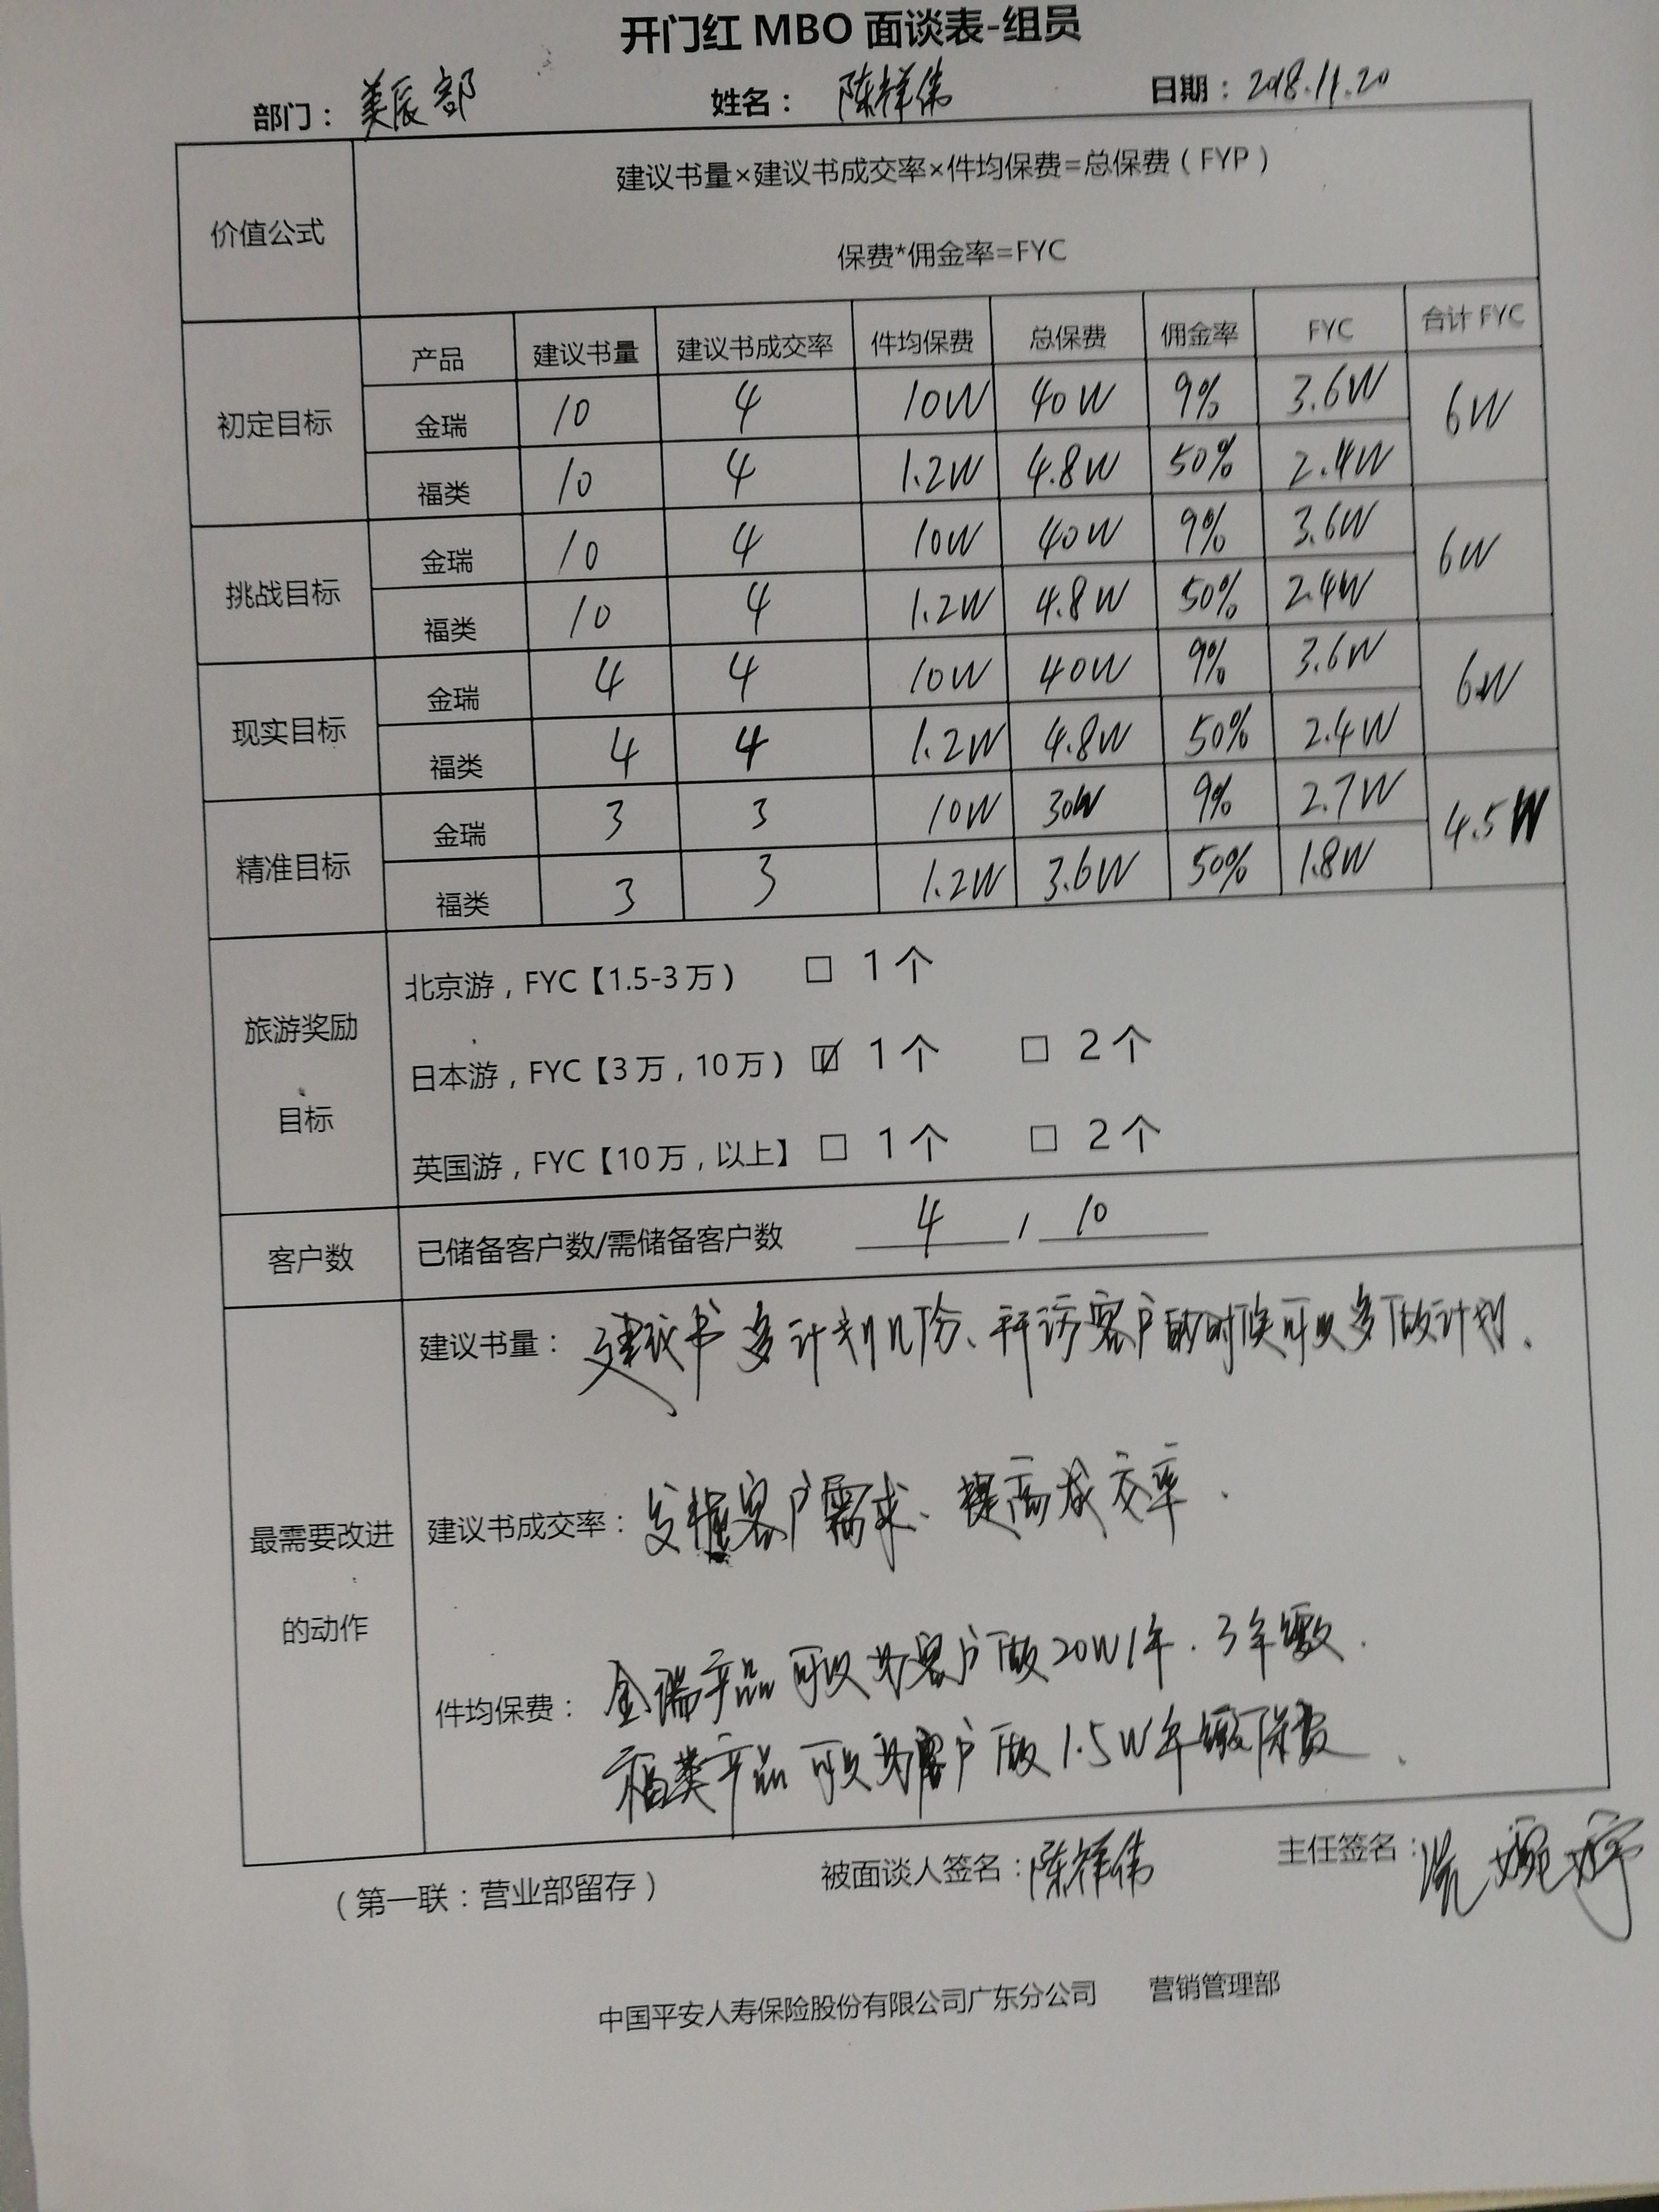 开门红 MBO 面谈表-组员
部门：美辰部 姓名：陈祥伟 日期：2018.11.20
价值公式
建议书量×建议书成交率×件均保费=总保费（FYP）
保费*佣金率=FYC
产品 建议书量 建议书成交率 件均保费 总保费 佣金率 FYC 合计 FYC
初定目标
金瑞 10 4 10W 40W 9% 3.6W 6W
福类 10 4 1.2W 4.8W 50% 2.4W
挑战目标
金瑞 10 4 10W 40W 9% 3.6W 6W
福类 10 4 1.2W 4.8W 50% 2.4W
现实目标
金瑞 4 4 10W 40W 9% 3.6W 6W
福类 4 4 1.2W 4.8W 50% 2.4W
精准目标
金瑞 3 3 10W 30W 9% 2.7W 4.5W
福类 3 3 1.2W 3.6W 50% 1.8W
旅游奖励
目标
北京游，FYC【1.5-3 万） □ 1 个
日本游，FYC【3 万，10 万）☑ 1 个 □ 2 个
英国游，FYC【10 万，以上】□ 1 个 □ 2 个
客户数 已储备客户数/需储备客户数 4 / 10
最需要改进
的动作
建议书量：建议书多计划几份、拜访客户的时候可以多做计划.
建议书成交率：发掘客户需求、提高成交率.
件均保费：金瑞产品可以为客户做20W1年.3年缴.
福类产品可以为客户做1.5W年缴保费、
（第一联：营业部留存） 被面谈人签名：陈祥伟 主任签名：
中国平安人寿保险股份有限公司广东分公司 营销管理部